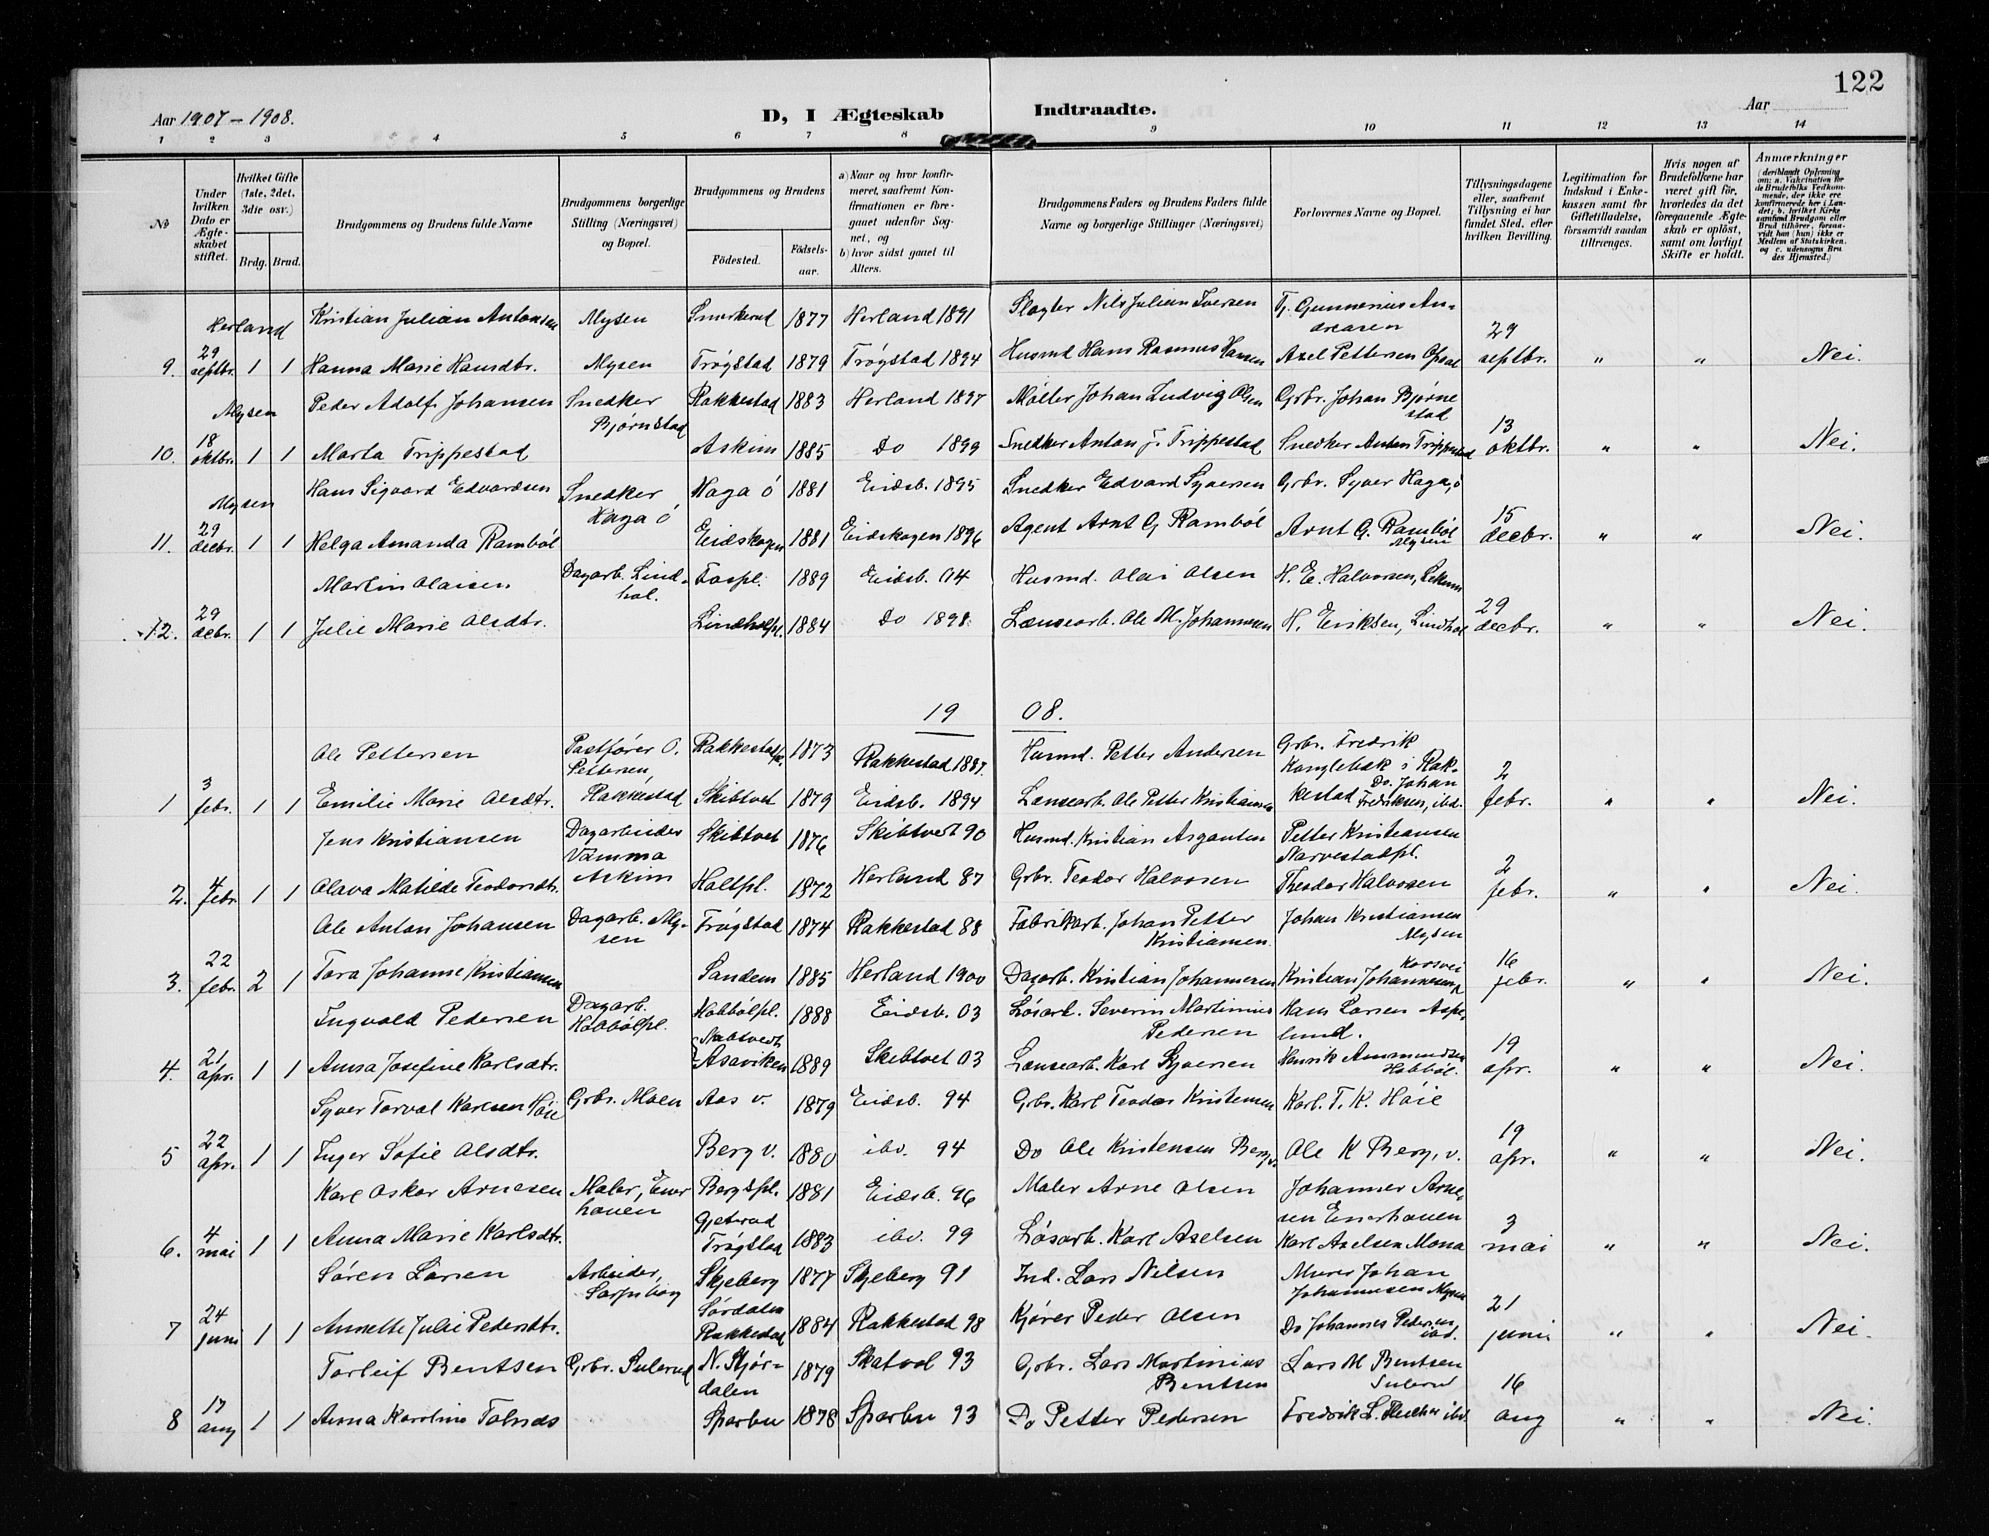 122
Aar 1907 - 1908. D, I Ægteskab Indtraadte. Aar
1 2 3 4 5 6 7 8 9 10 11 12 13 14
№
Under hvilken Dato er Ægteskabet stiftet.
Hvilket Gifte (1ste, 2det, 3die osv.)
Brdg. Brud.
Brudgommens og Brudens fulde Navne
Brudgommens borgerlige Stilling (Næringsvei) og Bopæl.
Brudgommens og Brudens
Födested. Födselsaar.
a) Naar og hvor konfirmeret, saafremt Konfirmationen er foregaaet udenför Sognet, og
b) hvor sidst gaaet til Alters.
Brudgommens Faders og Brudens Faders fulde Navne og borgerlige Stillinger (Næringsvei)
Forlovernes Navne og Bopæl.
Tillysningsdagene eller, saafremt Tillysning ei har fundet Sted, efter hvilken Bevilling.
Legitimation for Indskud i Enkekassen samt för Giftetilladelse, forsaavidt saadan tiltrænges.
Hvis nogen af Brudefolkene har været gift för, hvorledes da det foregaaende Ægteskab er oplöst, samt om lovligt Skifte er holdt.
Anmærkninger
Herland Kristian Julian Antonsen Mysen 1877 Herland 1891 Slagter Nils Julian Iversen G. Gunnerius Andreasen
9. 29 septbr. 1 1 Hanna Marie Hansdtr. Mysen Trøgstad 1879 Trøgstad 1894 Husmd Hans Rasmus Hansen Axel Pettersen 29 septbr. " " Nei.
Mysen Peder Adolf Johansen Snedker Bjørnstad Rakkestad 1883 Herland 1897 Møller Johan Ludvig Olsen Grbr. Johan Bjørnestad
10. 18 oktbr. 1 1 Marta Trippestad Askim 1885 Do 1899 Snedker Anton J. Trippestad Snedker Anton Trippestad 13 oktbr. " " Nei.
Mysen Hans Sigvard Edvardsen Snedker Haga ö 1881 Eidsb. 1895 Snedker Edvard Syversen Grbr. Syver Haga, ö
Haga ö
11. 29 decbr. 1 1 Helga Amanda Ramböl Eidskogen 1881 Eidskogen 1896 Agent Arnt G Ramböl Arnt G. Ramböl Mysen 15 decbr. " " Nei.
Martin Olaisen Dagarb. Lindhol. Fospl. 1889 Eidsb. 04 Husmd. Olai Olsen H. E. Halvorsen, Lekum
12. 29 decbr. 1 1 Julie Marie Olsdtr. Lindholpl. 1884 Do 1898 Lænsearb. Ole M. Johannesen H. Eriksen, Lindhol 29 decbr. " " Nei.
19 08.
Ole Pettersen Postfører O. Pettersen, Rakkestad Rakkestad 1873 Rakkestad 1887. Husmd. Petter Andersen Grbr. Fredrik Kanglebæk i Rakkestad
1 3 febr. 1 1 Emilie Marie Olsdtr. Skibtvet 1879 Eidsb. 1894 Lænsearb. Ole Petter Kristiansen Do. Johan Fredriksen, ibd. 2 febr. " " Nei.
Jens Kristiansen Dagarbeider Vamma Askim Skibtvet 1876 Skibtvet 90 Husmd. Kristian Petter Kristiansen Narvestadpl.
2. 4 febr. 1 1 Olava Matilde Teodorsdtr. Holtpl. 1872 Herland 87 Grbr. Teodor Halvorsen Theodor Halvorsen 2 febr. " " Nei.
Ole Anton Johansen Dagarb. Mysen Trøgstad 1874 Rakkestad 88 Fabrikarb. Johan Petter Kristiansen. Johan Kristiansen Mysen
3. 22 febr. 2 1 Tora Johanne Kristiansen Sandem 1885 Herland 1900 Dagarb. Kristian Johannesen Kristian Johannesen 16 febr. " " Nei.
Ingvald Pedersen Dagarb. Habbölpl. Habbölpl. 1888 Eidsb. 03 Løsarb. Severin Martinius Pedersen Hans Larsen Aspelund.
4. 21 apr. 1 1 Anna Josefine Karlsdtr. Skibtvedt Aasaviken 1889 Skibtvet 03 Lænsearb. Karl Syversen Henrik Ammundsen Habböl. 19 apr. " " Nei.
Syver Torval Karlsen Höie Grbr. Moen Aas v. 1879 Eidsb. 94 Grbr. Karl Teodor Kristensen Karl. T. K. Höie
5 22 apr. 1 1 Inger Sofie Olsdtr. Berg v. 1880 ibd. 94 Do Ole Kristensen Berg v. Ole K Berg, v. 19 apr. " " Nei.
Karl Oskar Arnesen Maler, Enerhauen Bergspl. 1881 Eidsb. 96 Maler Arne Olsen Johannes Arnesen Enerhauen
6. 4 mai 1 1 Anna Marie Karlsdtr. Gjeterud Trøgstad 1883 ibd. 99 Løsarb. Karl Axelsen Karl Axelsen Mona 3 mai " " Nei.
Søren Larsen Arbeider, Sarpsborg Skjeberg 1877 Skjeberg 91 Ind. Lars Nilsen Murer Johan Johannesen Mysen
7 24 juni 1 1 Annette Julie Pedersdtr. Sørdalen Rakkestad 1884 Rakkestad 98 Kjører Peder Olsen Do Johannes Pedersen ibd. 21 juni " " Nei.
Torleif Bentsen Grbr. Sulerud N. Stjørdalen 1879 Skatvol 93 Grbr. Lars Martinius Bentsen Lars M Bentsen Sulerud
8 17 aug 1 1 Anna Karoline Sparbu 1878 Sparbu 93 Do Petter Pedersen Fredrik L. ibd. 16 aug " " Nei.